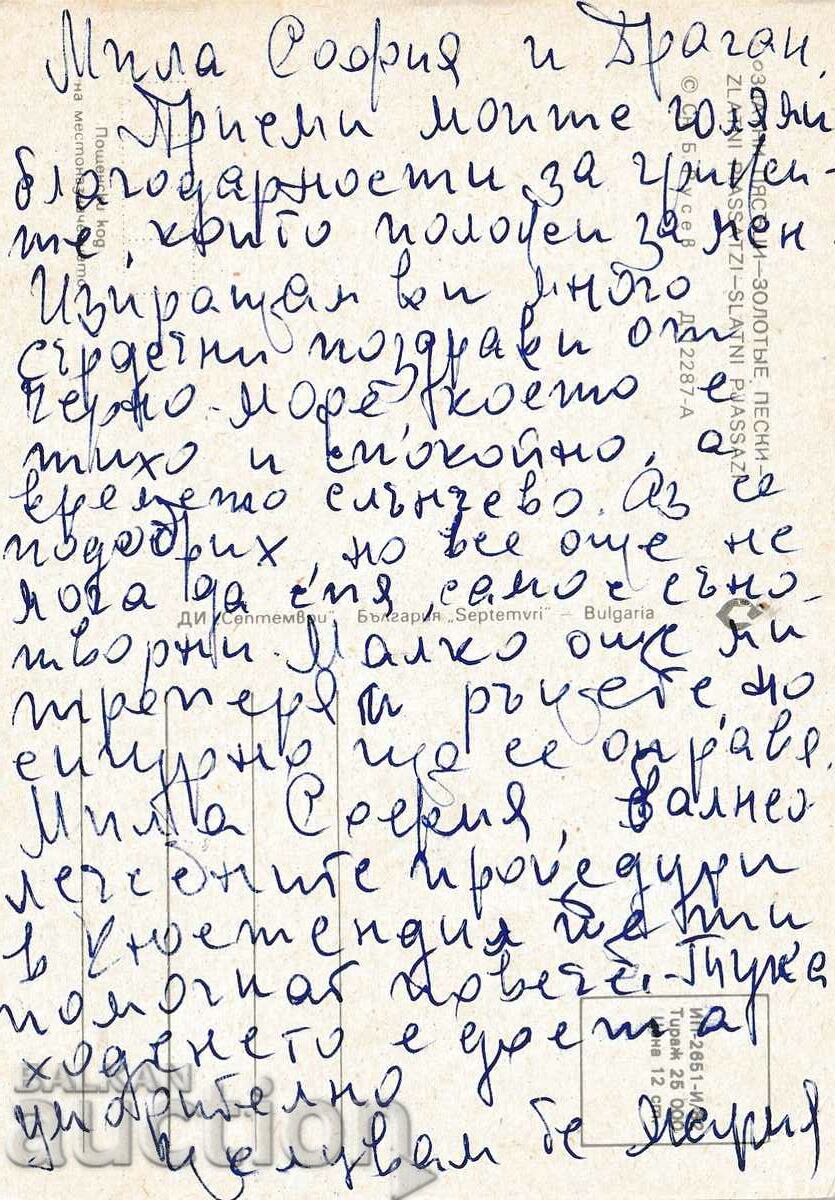 Мила София и Драган,
Приеми моите големи
благодарности за грижи-
те, които положи за мен
Изпращам ви много
сърдечни поздрави от
Черно море което е
тихо и спокойно, а
времето слънчево. Аз се
подобрих, но все още не
мога да спя, само с съно-
творни. Малко още ми
треперят ръцете, но
сигурно ще се оправя.
Мила София, Балнео
лечебните процедури
в Кюстендил ще ти
помогнат повече. Тука
ходенето е доста
уморително
Целувам те
ЗЛАТНИ ПЯСЪЦИ–ЗОЛОТЫЕ ПЕСКИ–
ZLATNI PJASSATZI–SLATNI PJASSAZI
© Д-12287-А
Пощенски код
на местоназначението
ДИ „Септември" България „Septemvri" – Bulgaria
ИП-2651-И/
Тираж 25 000
Цена 12 ст.
BALKAN
auction